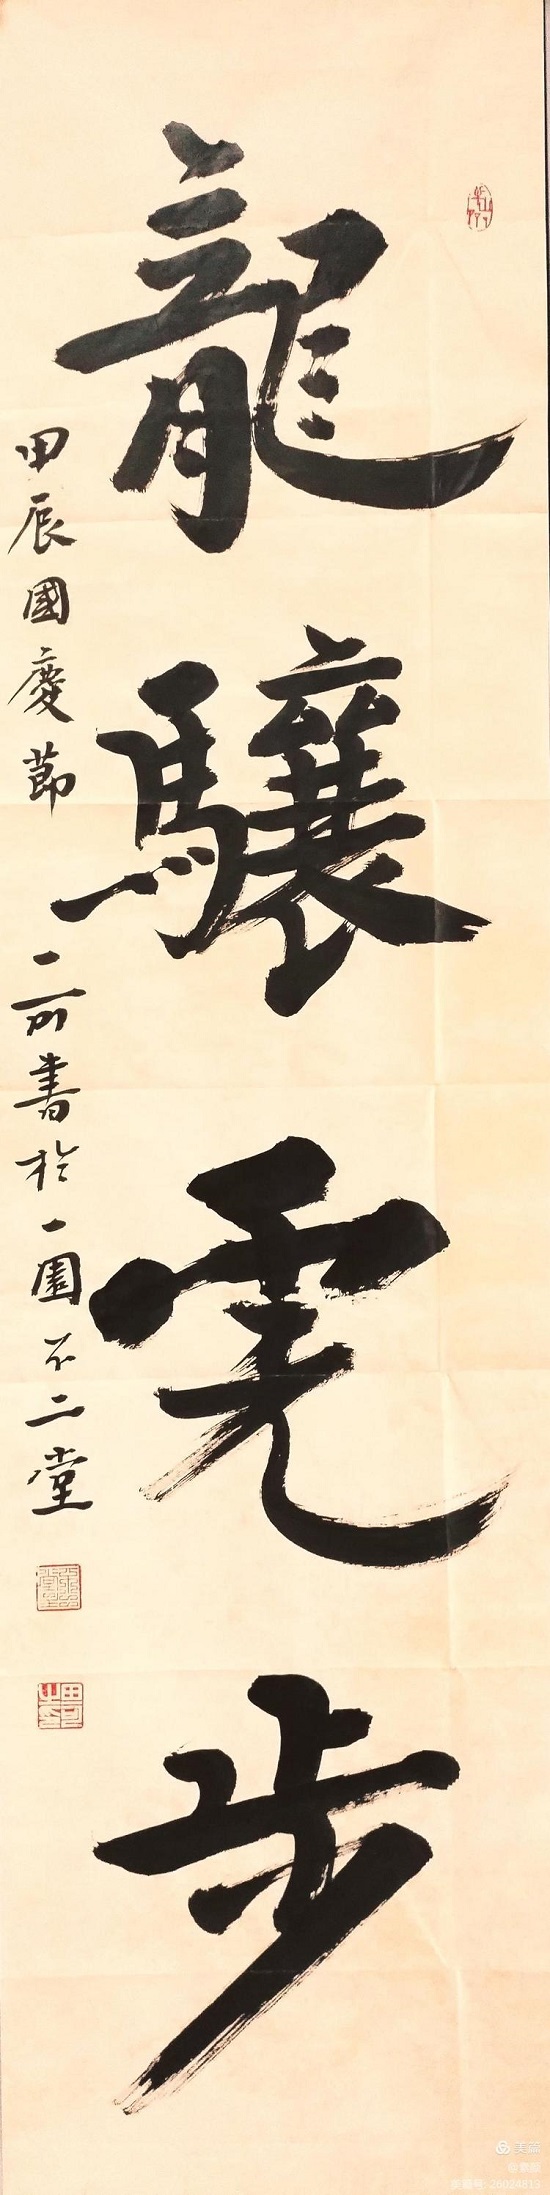 龍驤虎步
甲辰國慶節
書於一園不二堂
美篇
美篇号: 26024819